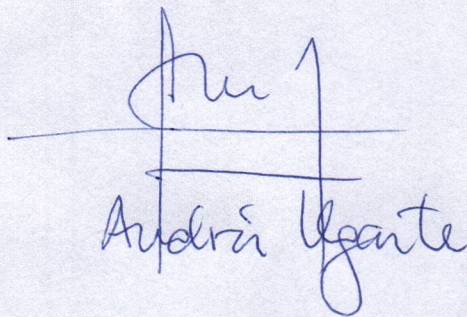 Andrés Ugarte